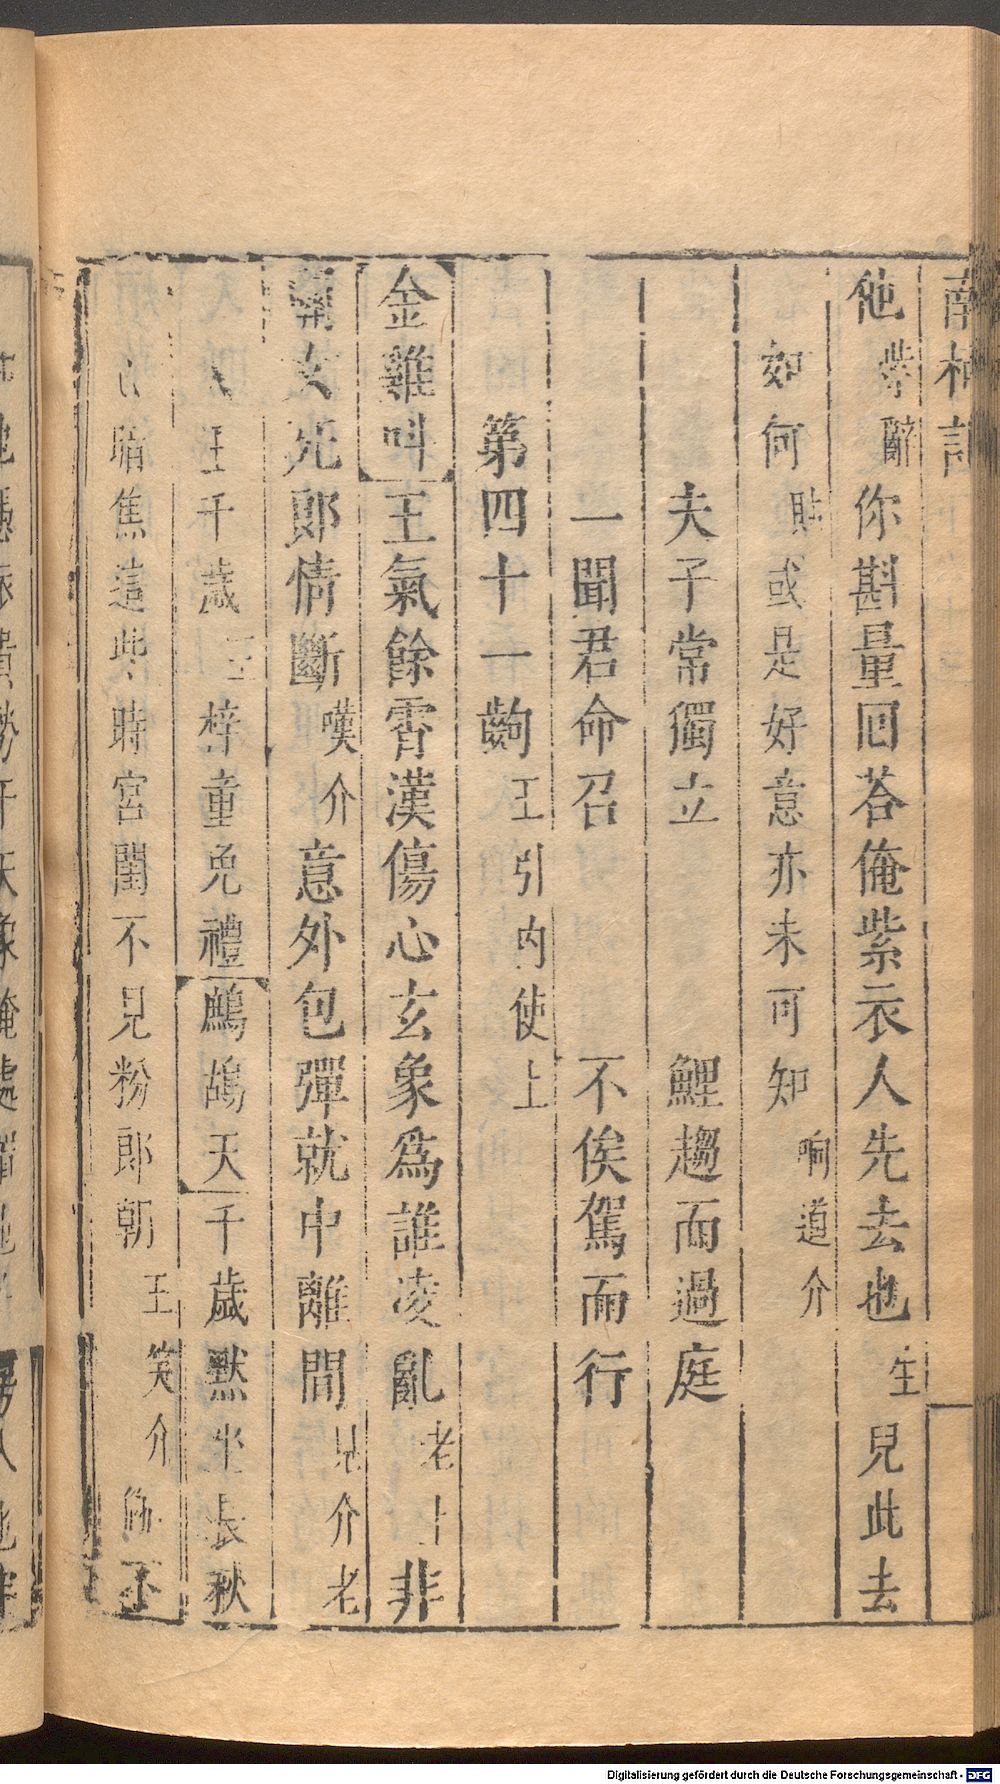 南柯記
他 紫辭 你斟量囘荅俺紫衣人先去也 生 兒此去
如何 貼 或是好意亦未可知 响道介
夫子常獨立 鯉趨而過庭
一聞君命召 不俟駕而行
第四十一齣 王引内使上
金雞叫 王氣餘霄漢傷心玄象為誰凌亂 老上 非
關女死郎情斷 嘆介 意外包彈就中離間 見介 老
王千歳 王 梓童免禮 鷓鴣天 千歳黙坐長秋
暗焦這些時宮闈不見粉郎朝 王笑介 你不
Digitalisierung gefördert durch die Deutsche Forschungsgemeinschaft - DFG